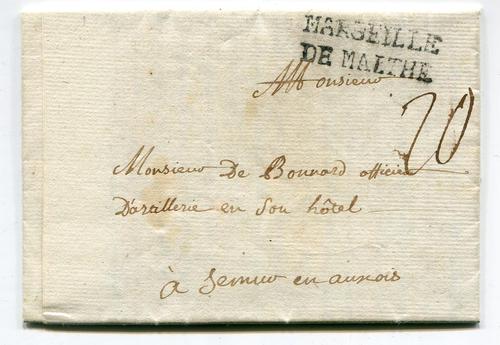 MARSEILLE
DE MALTHE
Monsieur
20
Monsieur De Bonnard officier
D'artillerie en son hôtel
à Semur en auxois